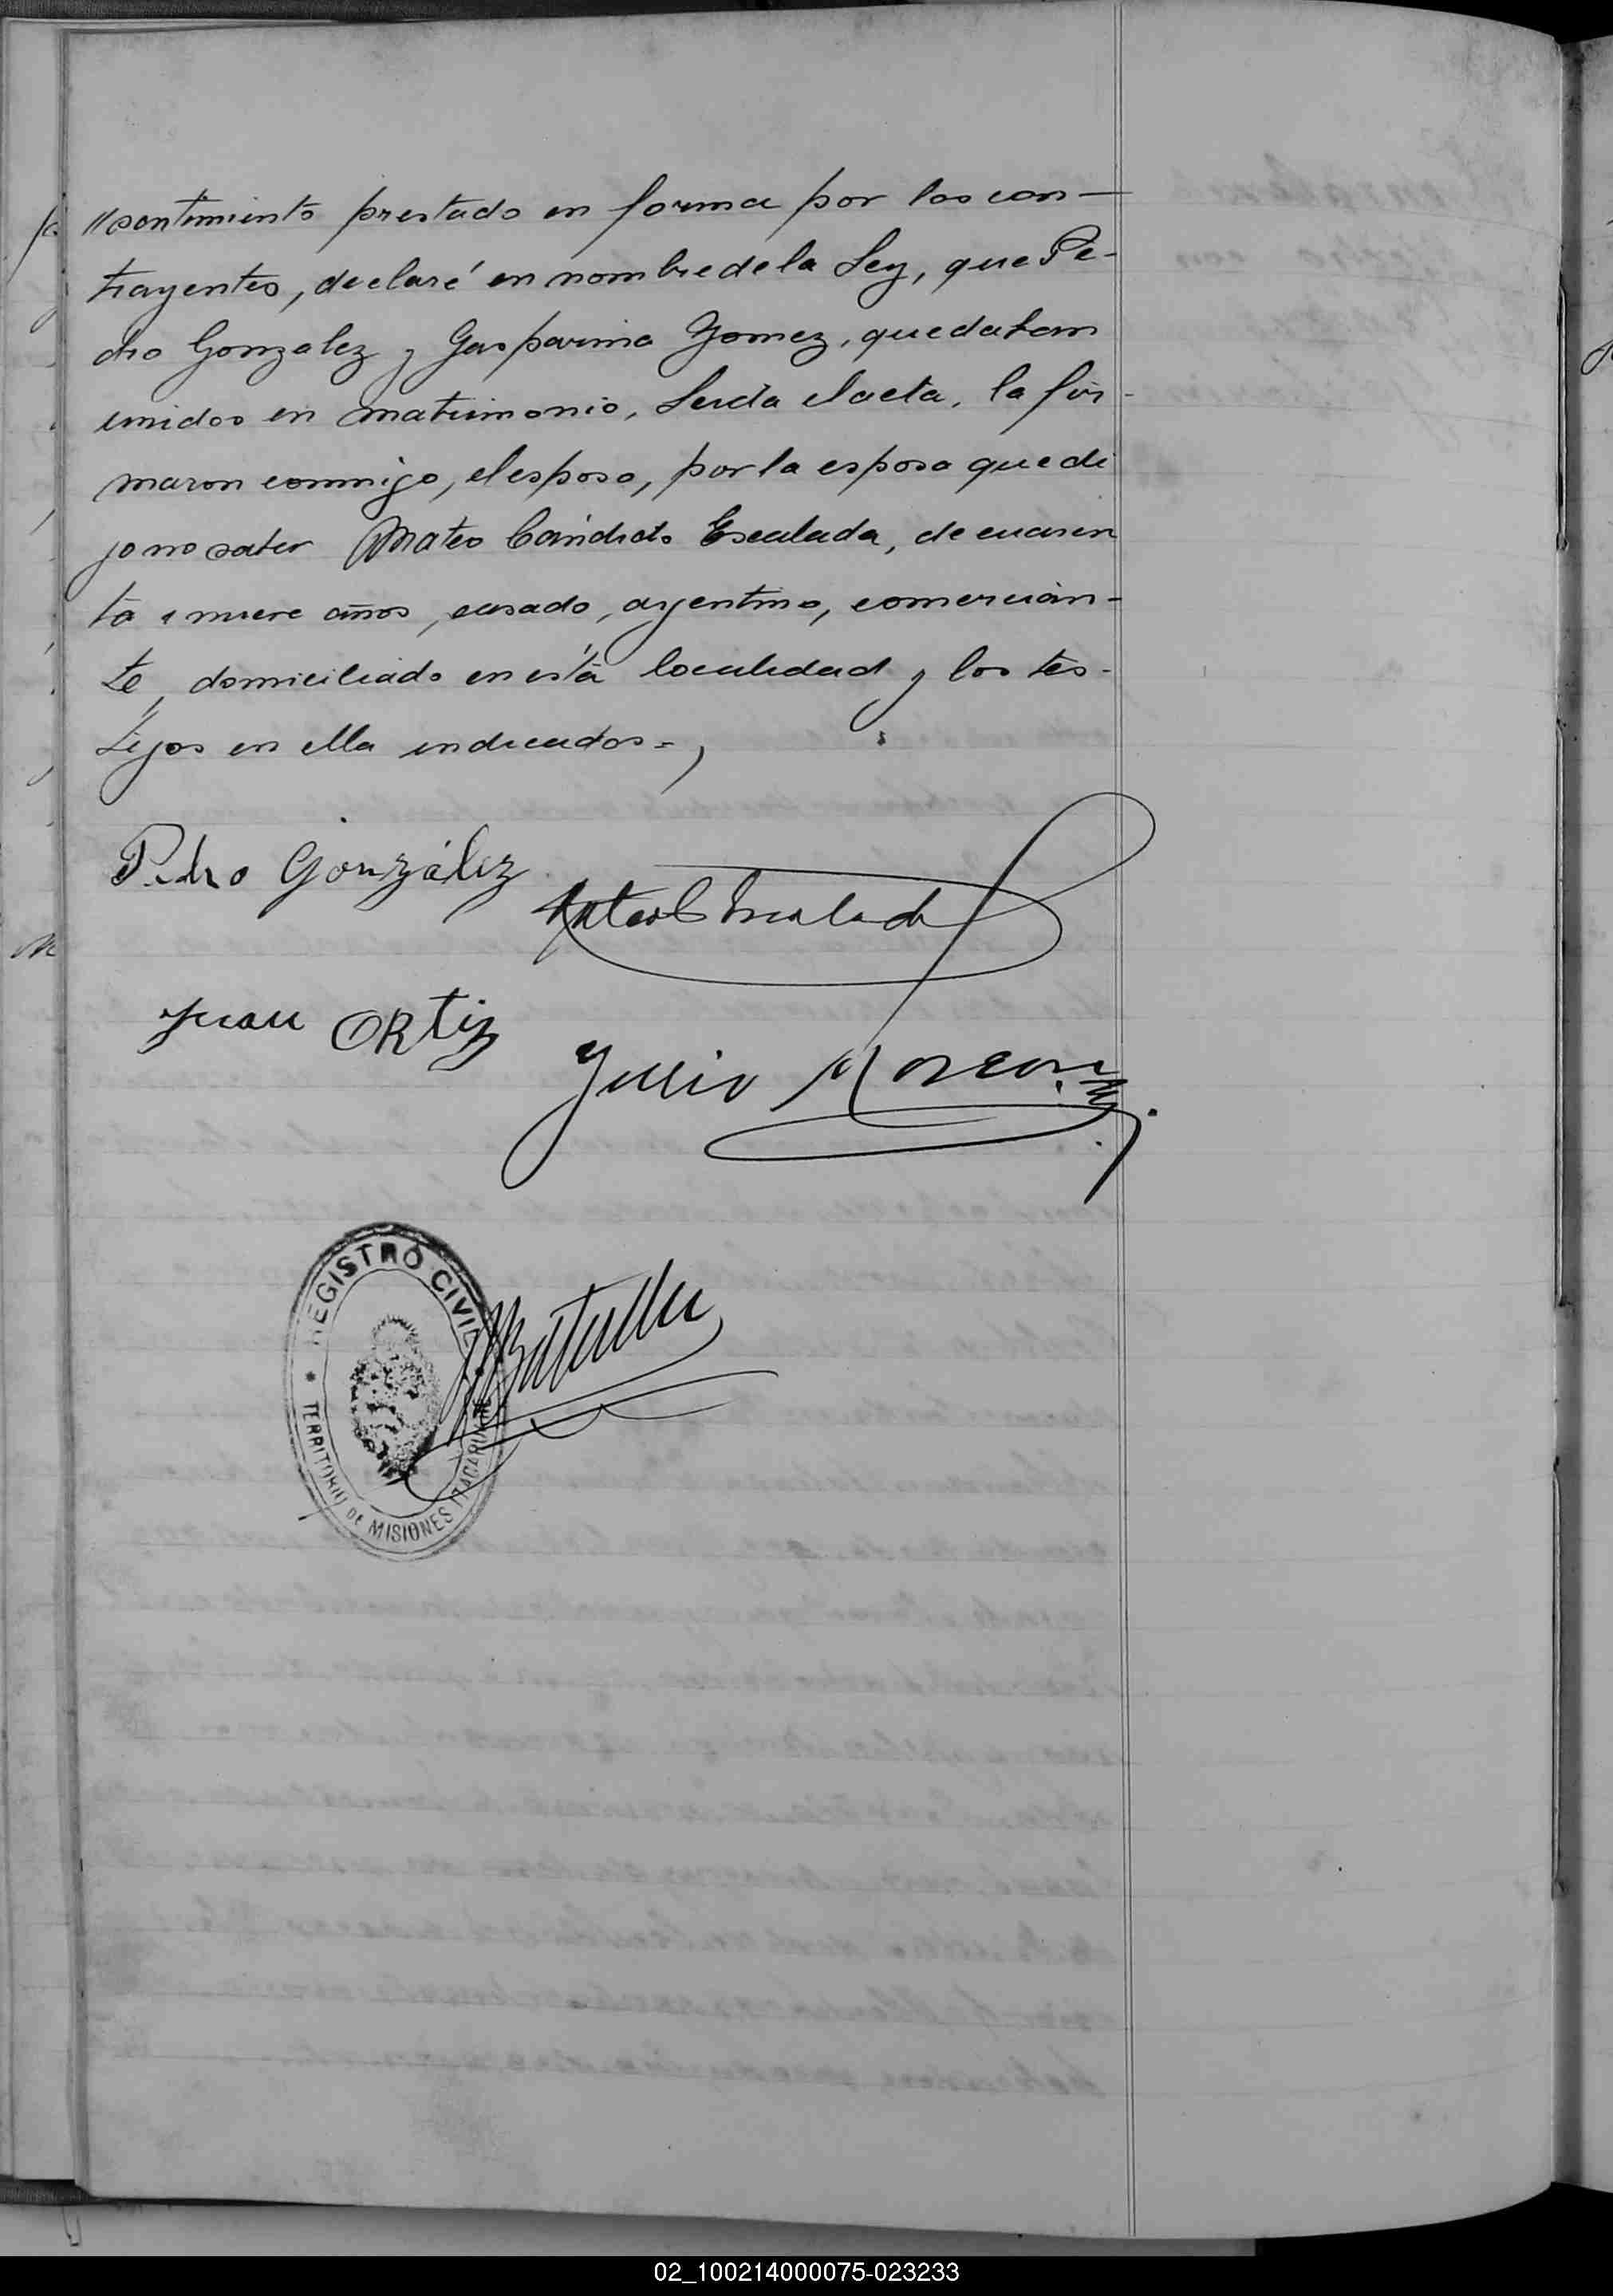 "sentimiento prestado en forma por los con-
trayentes, declaré en nombre de la Ley, que Pe-
dro Gonzalez y Gasparina Gomez, quedaban
unidos en matrimonio. Leida el acta, la fir-
maron conmigo, el esposo, por la esposa que di
jo no saber Mateo Cándido Escalada, de cuaren
ta i nueve años, casado, argentino, comercian-
te, domiciliado en esta localidad y los tes-
tigos en ella indicados.=
Pedro González
Mateo C Escalada
Juan ORtiz
Julio
REGISTRO CIVIL
TERRITORIO DE MISIONES ITACARUARE
02_100214000075-023233